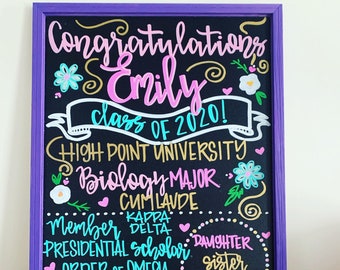 Congratulations
Emily
class of 2020!
HIGH POINT UNIVERSITY
Biology MAJOR
CUM LAUDE
Member KAPPA DELTA
PRESIDENTIAL Scholar
ORDER OF OMEGA
DAUGHTER
sister